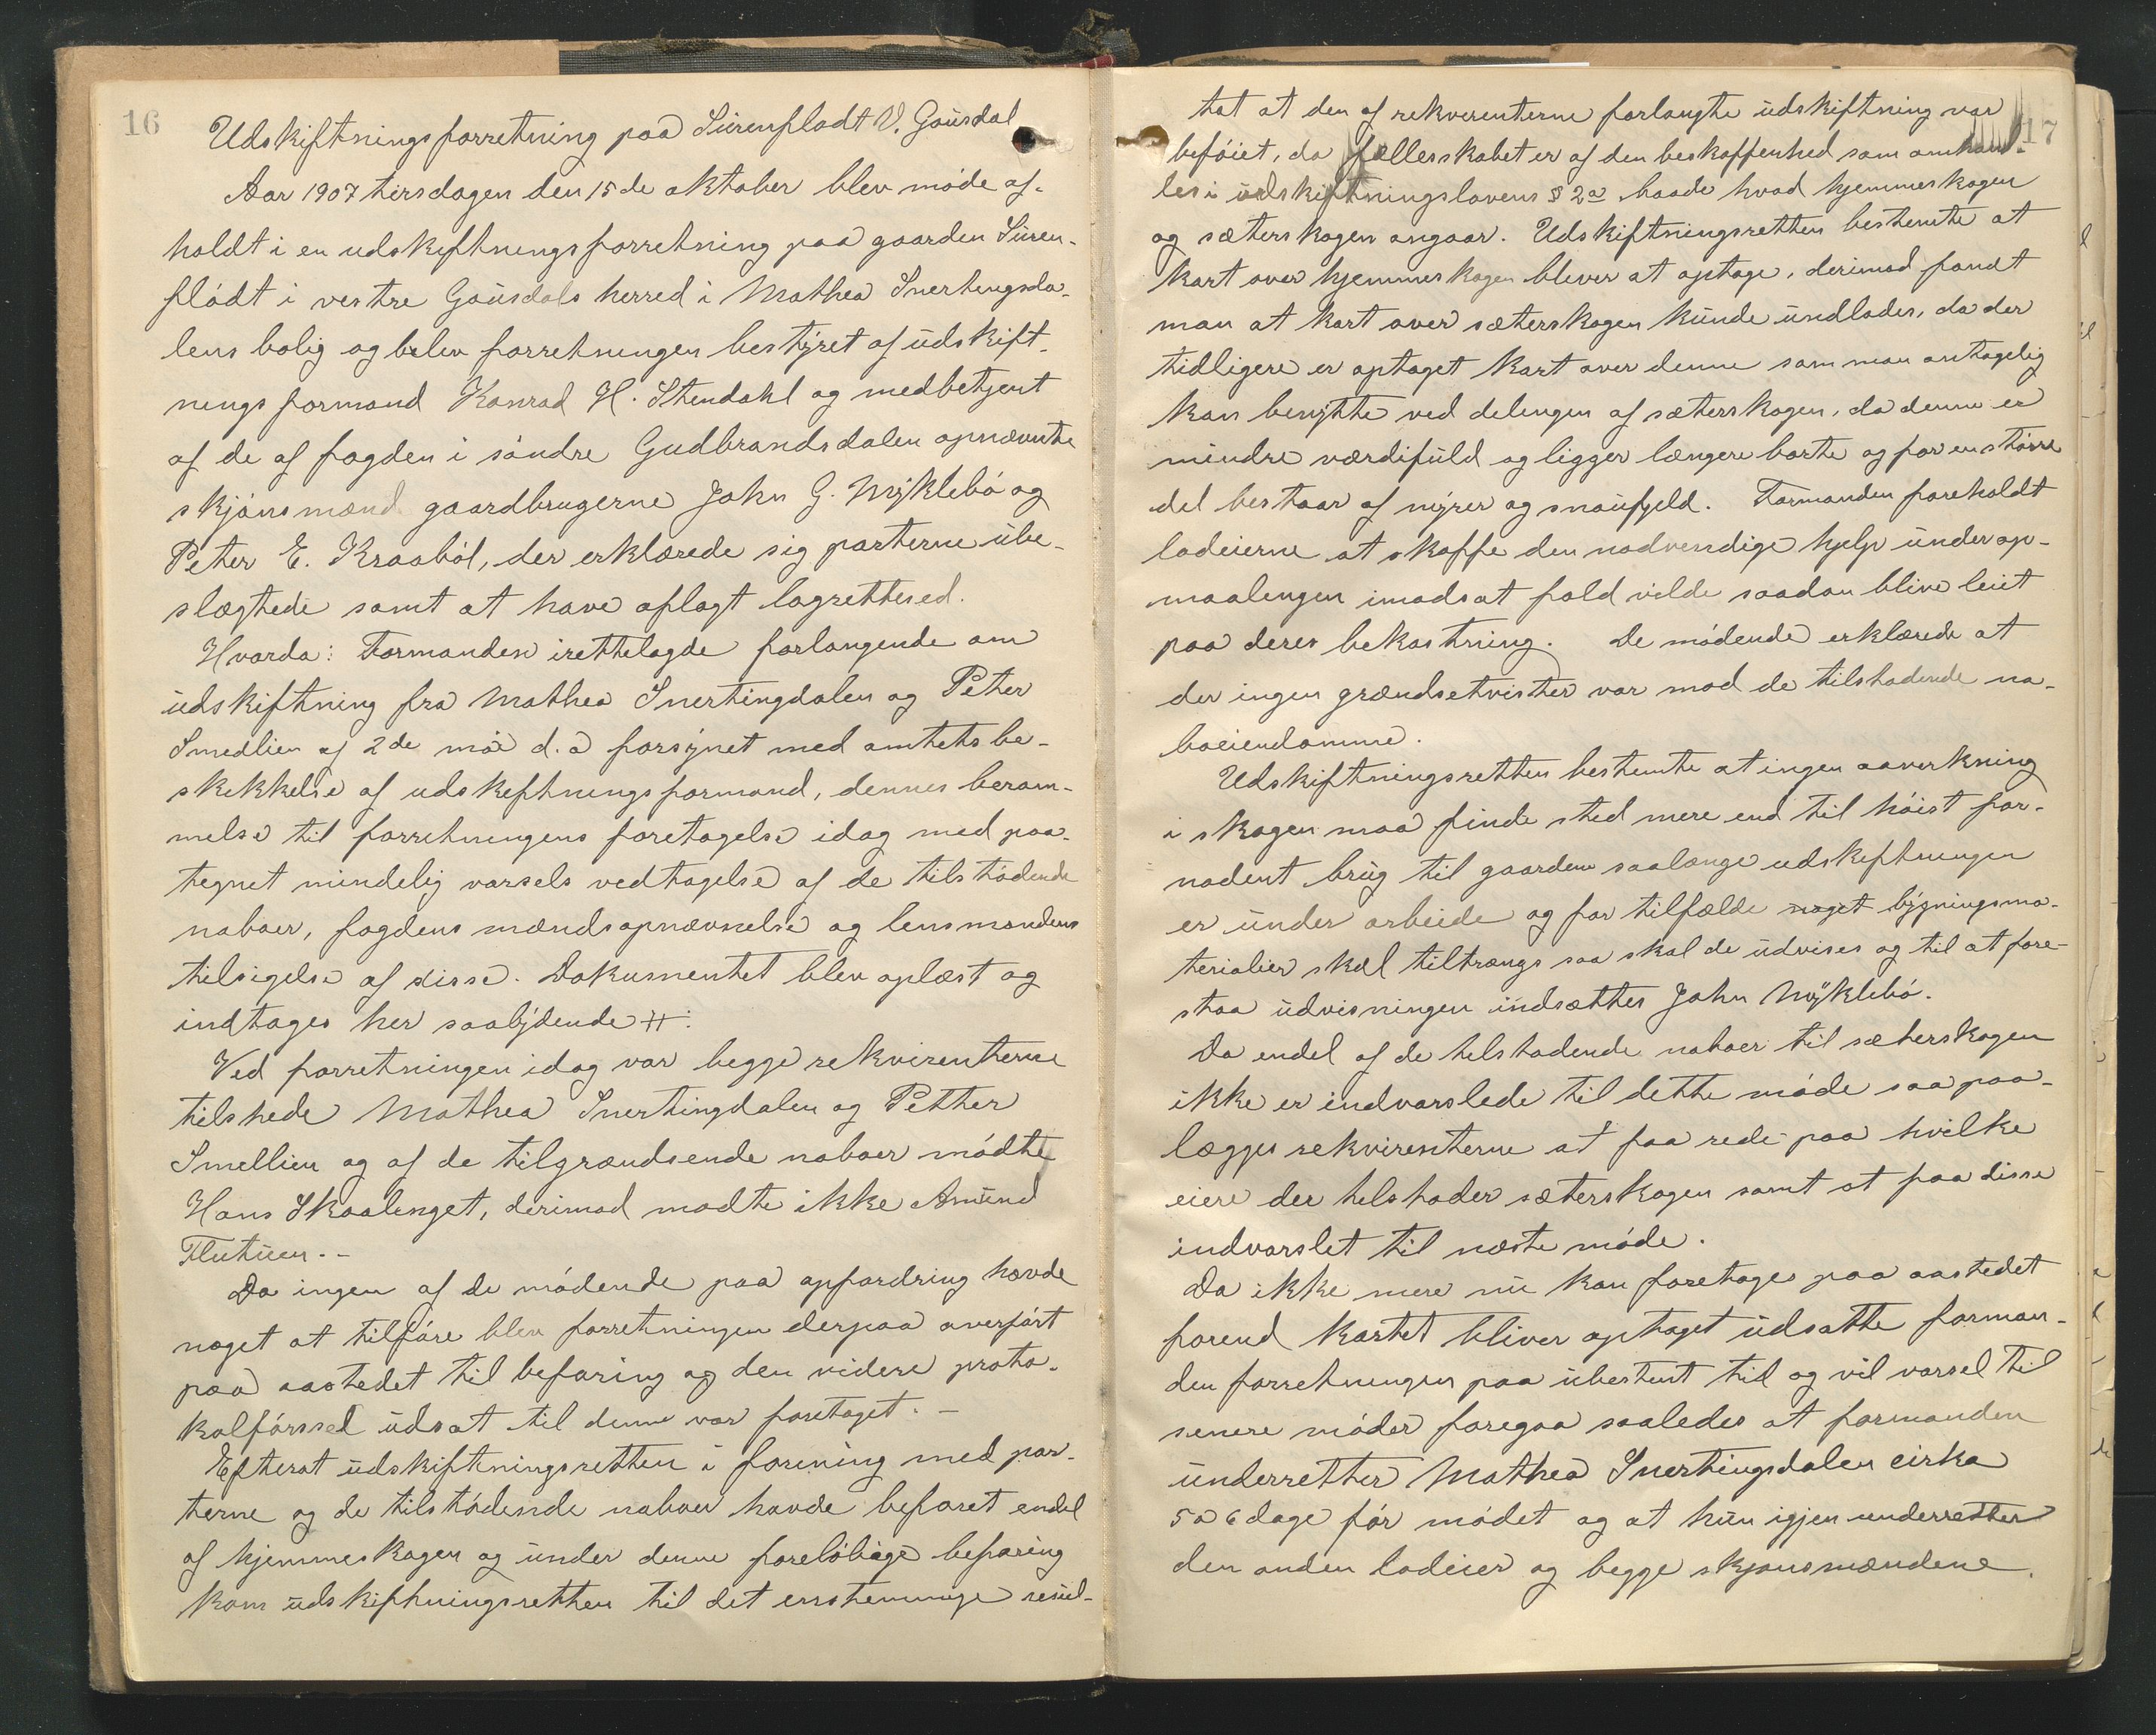 16
Udskiftningsforretning paa Surenflødt V. Gausdal
Aar 1907 tirsdagen den 15de oktober blev møde af-
holdt i en udskiftningsforretning paa gaarden Suren-
flødt i vestre Gausdals herred i Mathea Snertengsda-
lens bolig og blev forretningen bestyret af udskift-
nings formand Konrad H. Stendahl og medbetjent
af de af fogden i søndre Gudbrandsdalen opnævnte
skjønsmænd gaardbrugerne John G. Myklebø og
Peter E. Kraabøl, der erklærede sig parterne ube-
slægtede samt at have aflagt lagrettesed.
Hvorda: Formanden irettelagde forlangende om
udskiftning fra Mathea Snertingdalen og Peter
Smedlien af 2de mai d.a forsynet med amtets be-
skikkelse af udskiftningsformand, dennes beram-
melse til forretningens foretagelse idag med paa-
tegnet mindelig varsels vedtagelse af de tilstødende
naboer, fogdens mændsopnævnelse og lensmandens
tilsigelse af disse. Dokumentet blev oplæst og
indtages her saalydende #:
Ved forretningen idag var begge rekvirenterne
tilstede Mathea Snertingdalen og Petter
Smellien og af de tilgrændsende naboer mødte
Hans Skaalenget, derimod mødte ikke Amund
Flutuen.-
Da ingen af de mødende paa opfordring havde
noget at tilføre blev forretningen derpaa overført
paa aastedet til befaring og den videre proto-
kolførsel udsat til denne var foretaget.-
Efterat udskiftningsretten i forening med par-
terne og de tilstødende naboer havde befaret endel
af hjemmeskogen og under denne foreløbige befaring
kom udskiftningsretten til det enstemmige resul-
17
tat at den af rekvirenterne forlangte udskiftning var
beføiet, da fællesskabet er af den beskaffenhed som omhand-
les i udskiftningslovens § 2a baade hvad hjemmeskogen
og sæterskogen angaar. Udskiftningsretten bestemte at
kart over hjemmeskogen bliver at optage, derimod fandt
man at kart over sæterskogen kunde undlades, da der
tidligere er optaget kart over denne som man antagelig
kan benytte ved delingen af sæterskogen, da denne er
mindre værdifuld og ligger længere borte og for en større
del bestaar af myrer og snaufjeld. Formanden foreholdt
lodeierne at skaffe den nødvendige hjelp under op-
maalingen imodsat fald vilde saadan blive leiet
paa deres bekostning. De mødende erklærede at
der ingen grændsetvister var mod de tilstødende na-
boeiendomme.
Udskiftningsretten bestemte at ingen aaverkning
i skogen maa finde sted mere end til høist for-
nødent brug til gaardene saalænge udskiftningen
er under arbeide og for tilfælde noget bygningsma-
terialier skal tiltrængs saa skal de udvises og til at fore-
staa udvisningen indsættes John Myklebø.
Da endel af de tilstødende naboer til sæterskogen
ikke er indvarslede til dette møde saa paa-
lægges rekvirenterne at faa rede paa hvilke
eiere der tilstøder sæterskogen samt at faa disse
indvarslet til næste møde.
Da ikke mere nu kan foretages paa aastedet
førend kartet bliver optaget udsatte forman-
den forretningen paa ubestemt tid og vil varsel til
senere møder foregaa saaledes at formanden
underretter Mathea Snertingsdalen cirka
5 a 6 dage før mødet og at hun igjen underretter
den anden lodeier og begge skjønsmændene.